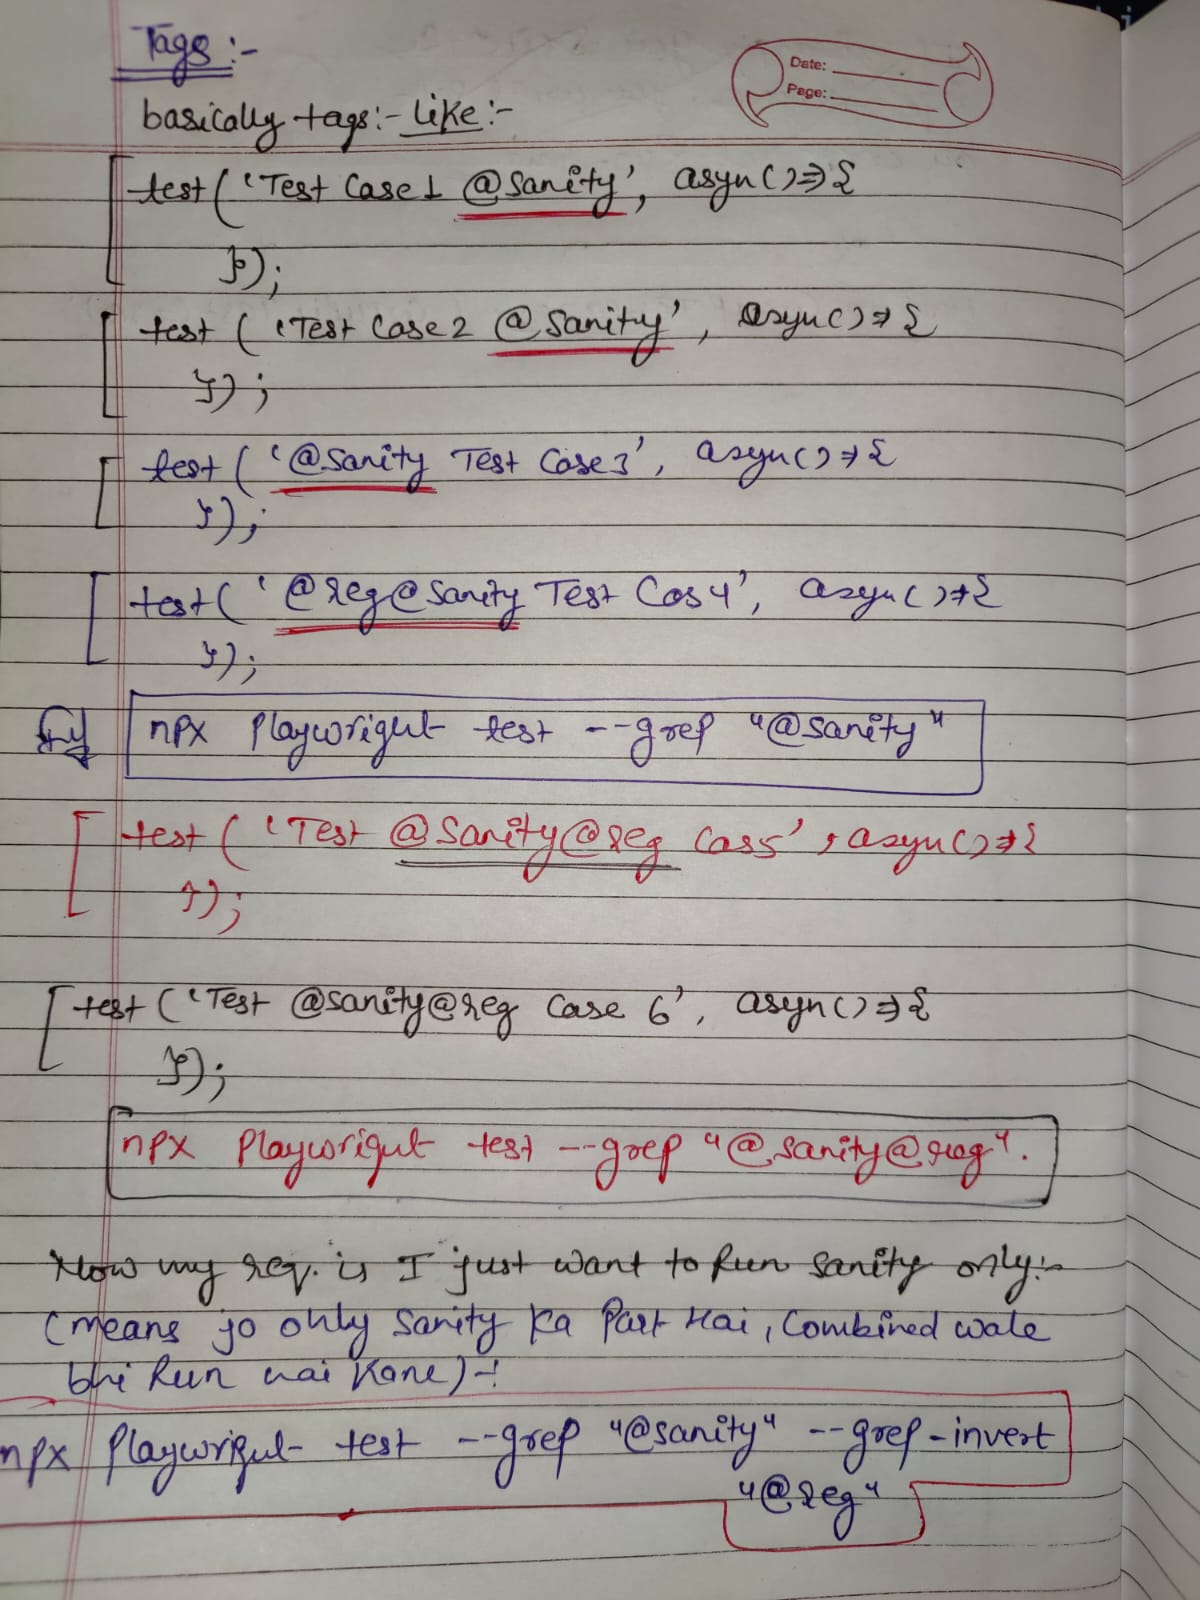 Tags:-
Date:
Page:
basically tags:- Like:-
test('Test Case1 @Sanity', asyn()=>{
});
test('Test Case2 @Sanity', asyn()=>{
});
test('@Sanity Test Case3', asyn()=>{
});
test('@reg@Sanity Test Cas4', asyn()=>{
});
npx Playwright test --grep "@Sanity"
test('Test @Sanity@reg Cas5', asyn()=>{
});
test('Test @sanity@reg Case 6', asyn()=>{
});
npx Playwright test --grep "@sanity@reg".
Now my req. is I just want to Run Sanity only:-
(means jo only Sanity Ka Part Hai, Combined wale
bhi Run nai Karne)-:
npx Playwright test --grep "@sanity" --grep-invert
"@reg"